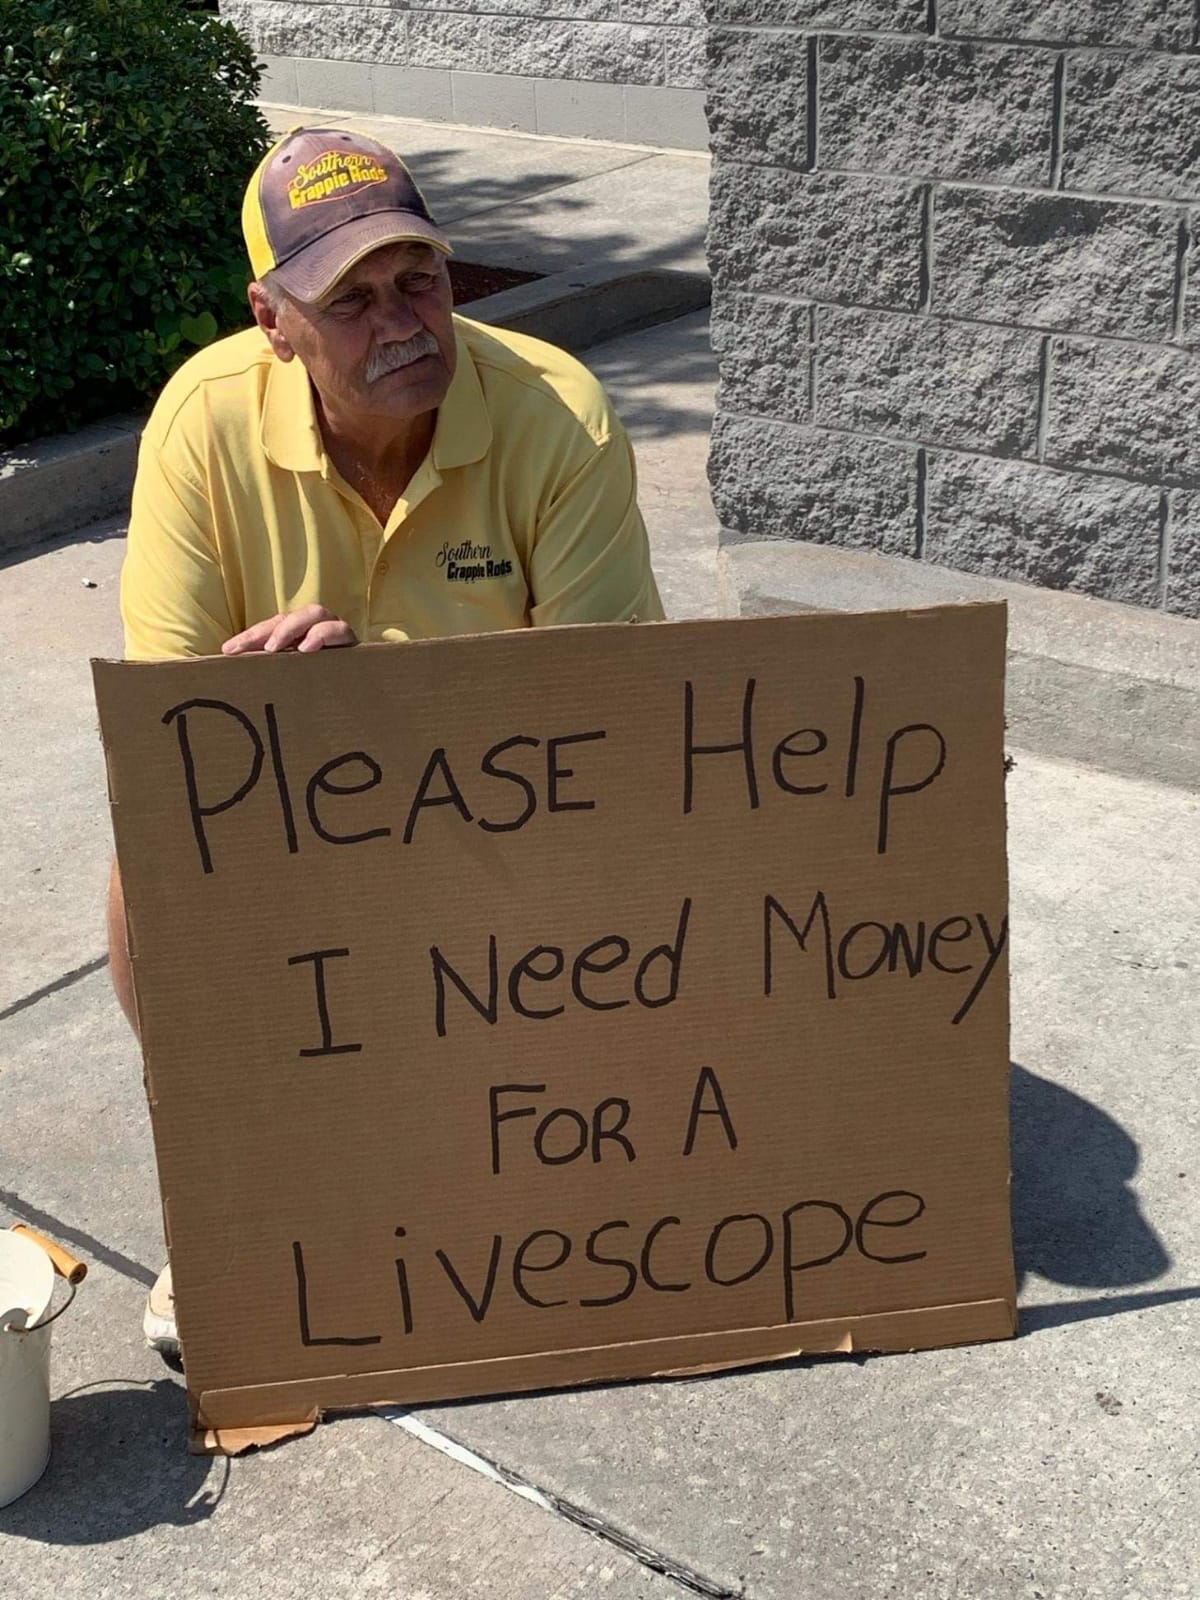 Southern
Crappie Rods
Southern
Crappie Rods
PleASE Help
I Need Money
FOR A
Livescope